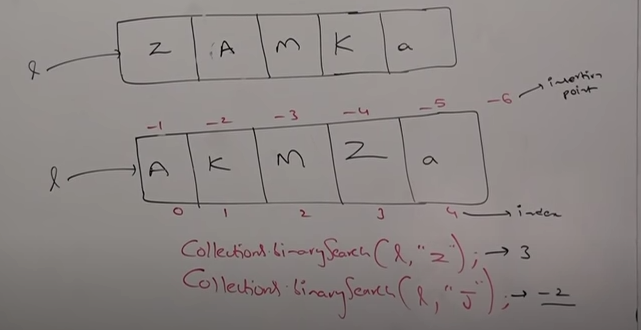 Z A M K a
l
-1 -2 -3 -4 -5 -6 insertion point
l
A K M Z a
0 1 2 3 4 index
Collections.binarySearch(l, "Z"); → 3
Collections.binarySearch(l, "J"); → -2